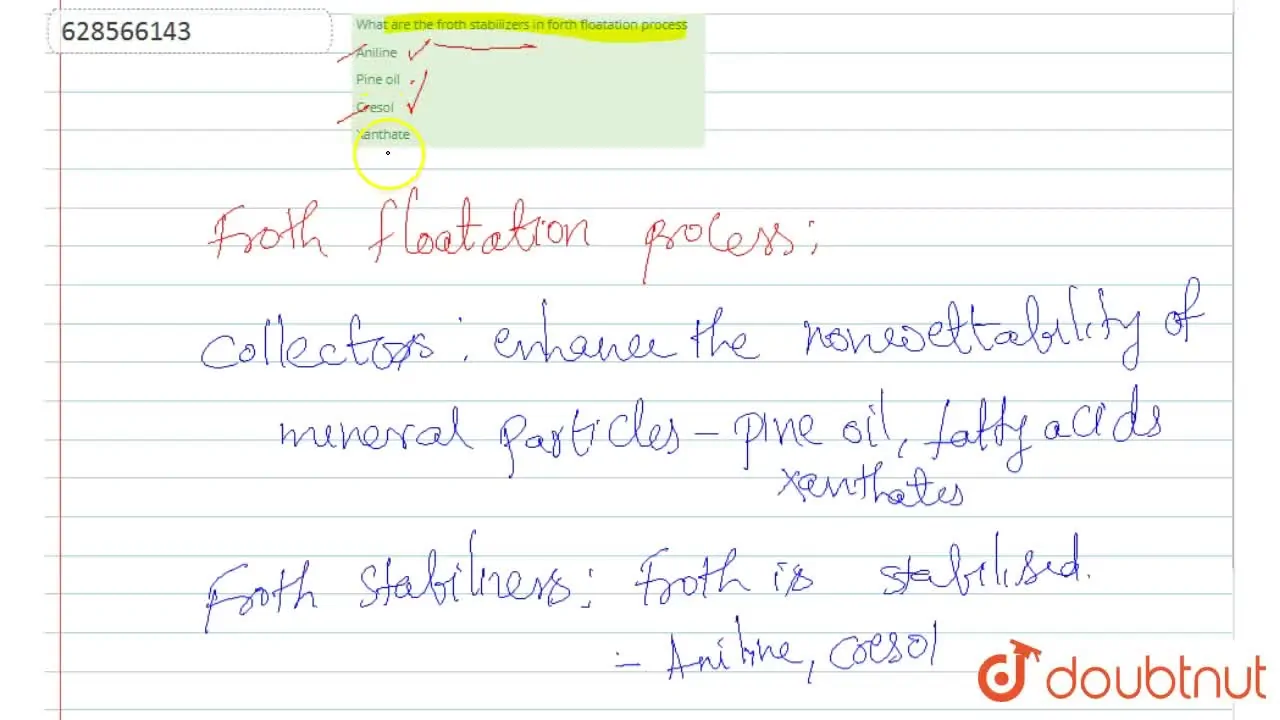 628566143
What are the froth stabilizers in forth floatation process
Aniline
Pine oil
Cresol
Xanthate
Froth floatation process;
Collectors : enhance the nonwettability of
mineral particles – pine oil, fatty acids
xanthates
Froth stabilizers ; Froth is stabilised.
– Aniline, cresol
doubtnut